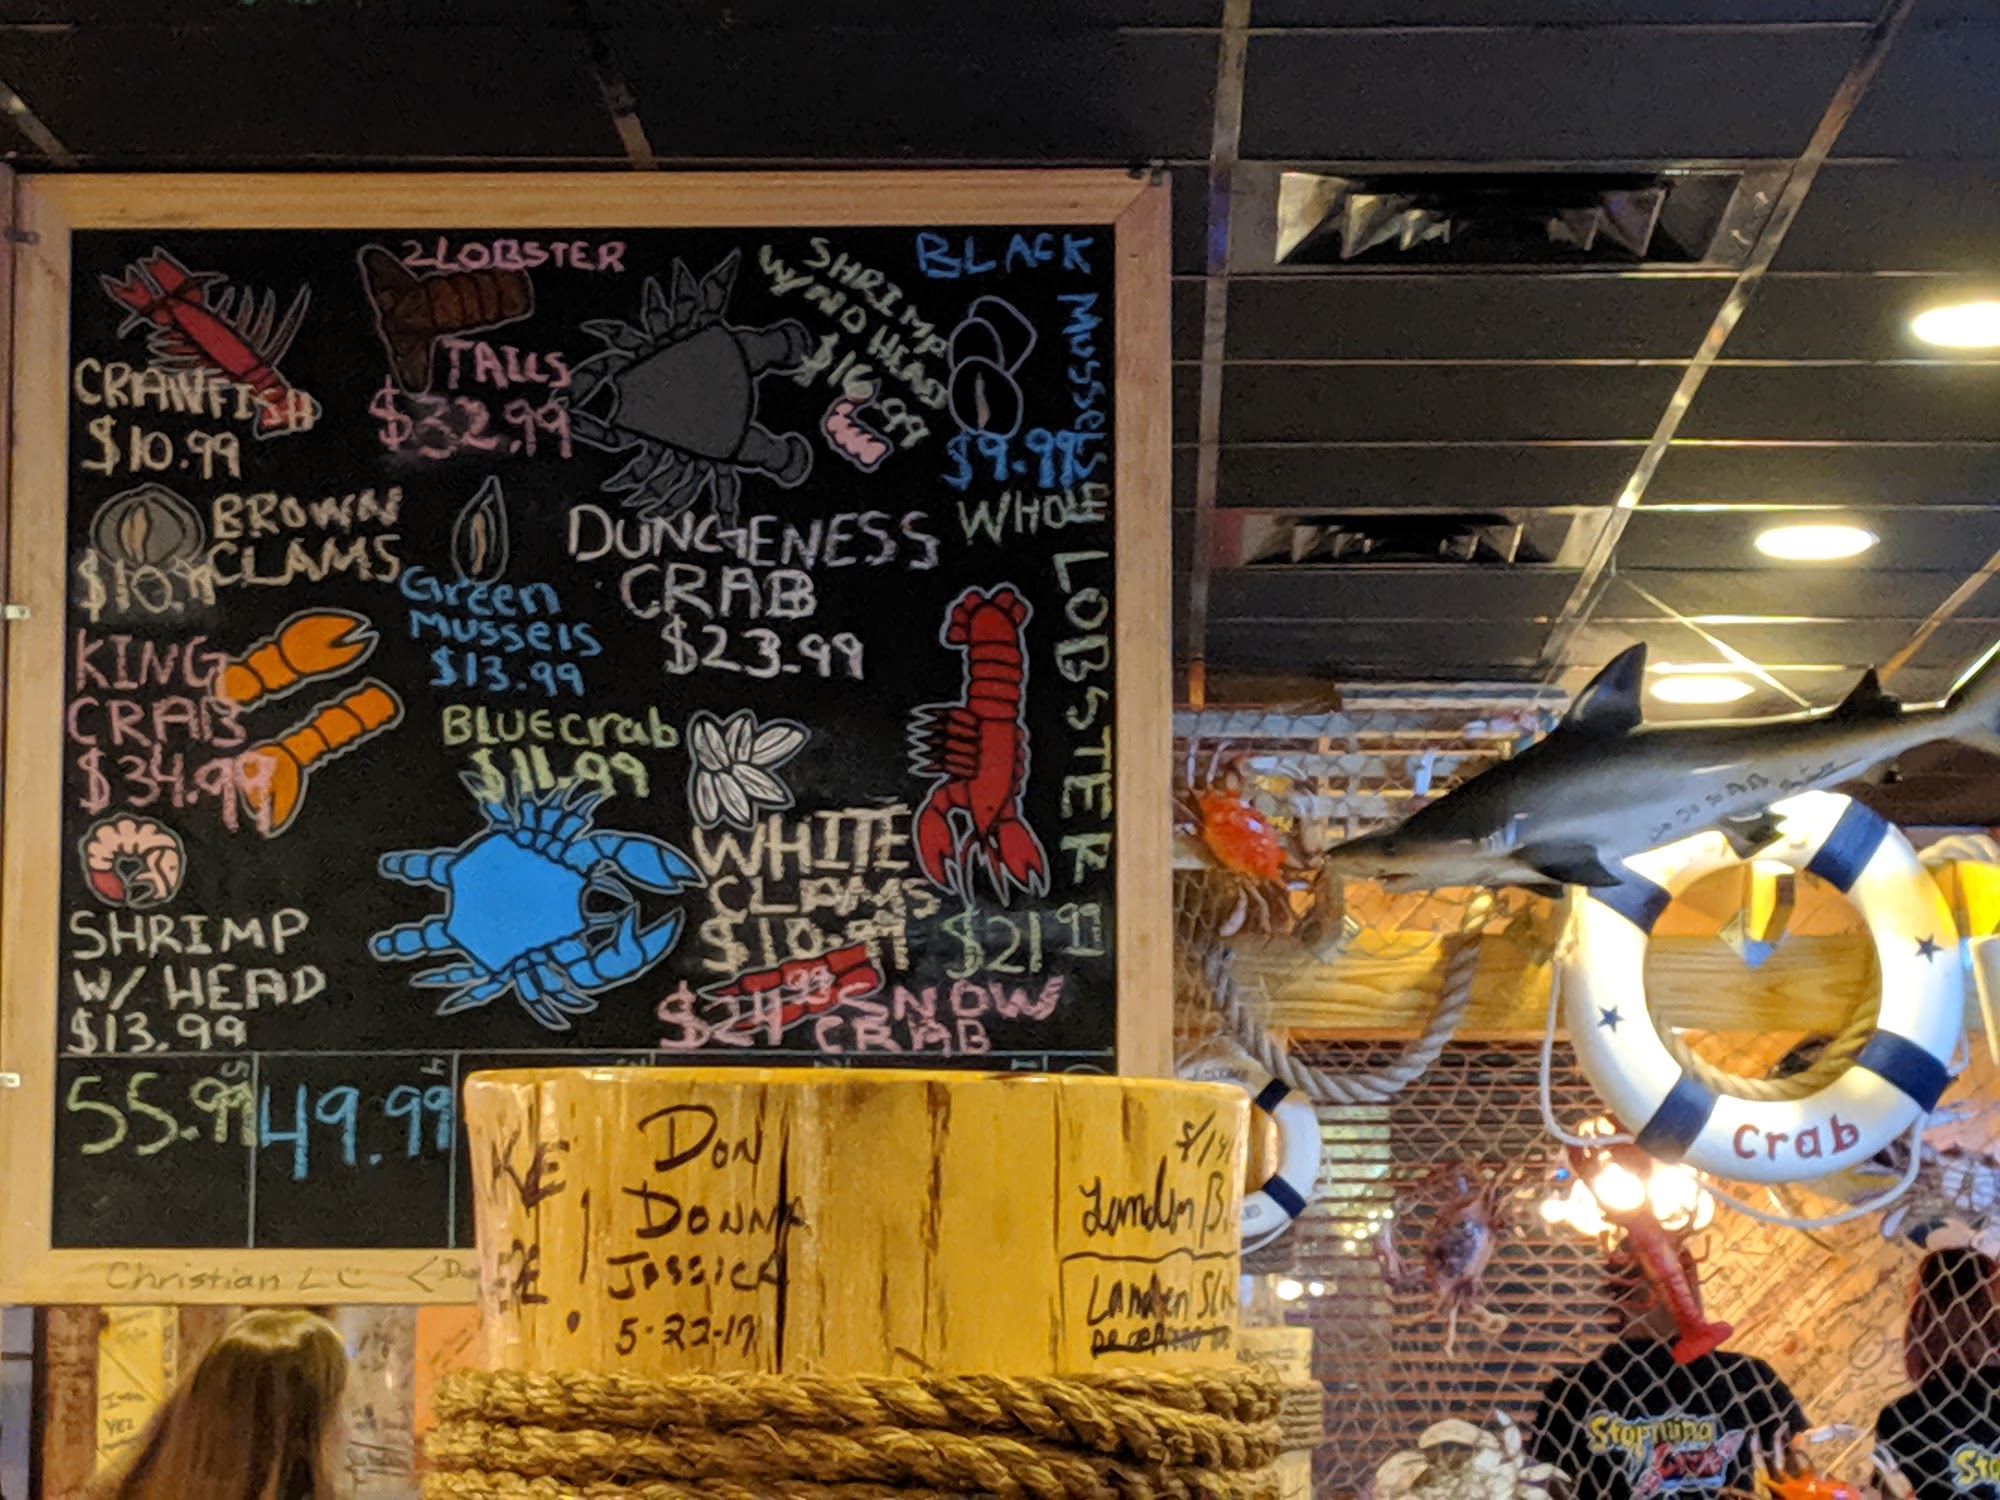 CRAWFISH
$10.99
2 LOBSTER
TAILS
$32.99
SHRIMP
W/ NO HEAD
$16.99
BLACK
Mussels
$9.99
BROWN
CLAMS
$10.99
Green
Mussels
$13.99
DUNGENESS
CRAB
$23.99
WHOLE
LOBSTER
$21.99
KING
CRAB
$34.99
BLUE crab
$11.99
WHITE
CLAMS
$10.99
SHRIMP
W/ HEAD
$13.99
$24.99 SNOW
CRAB
55.99
49.99
Christian L
DON
DONNA
JESSICA
5-22-17
Landen B.
Landen
crab